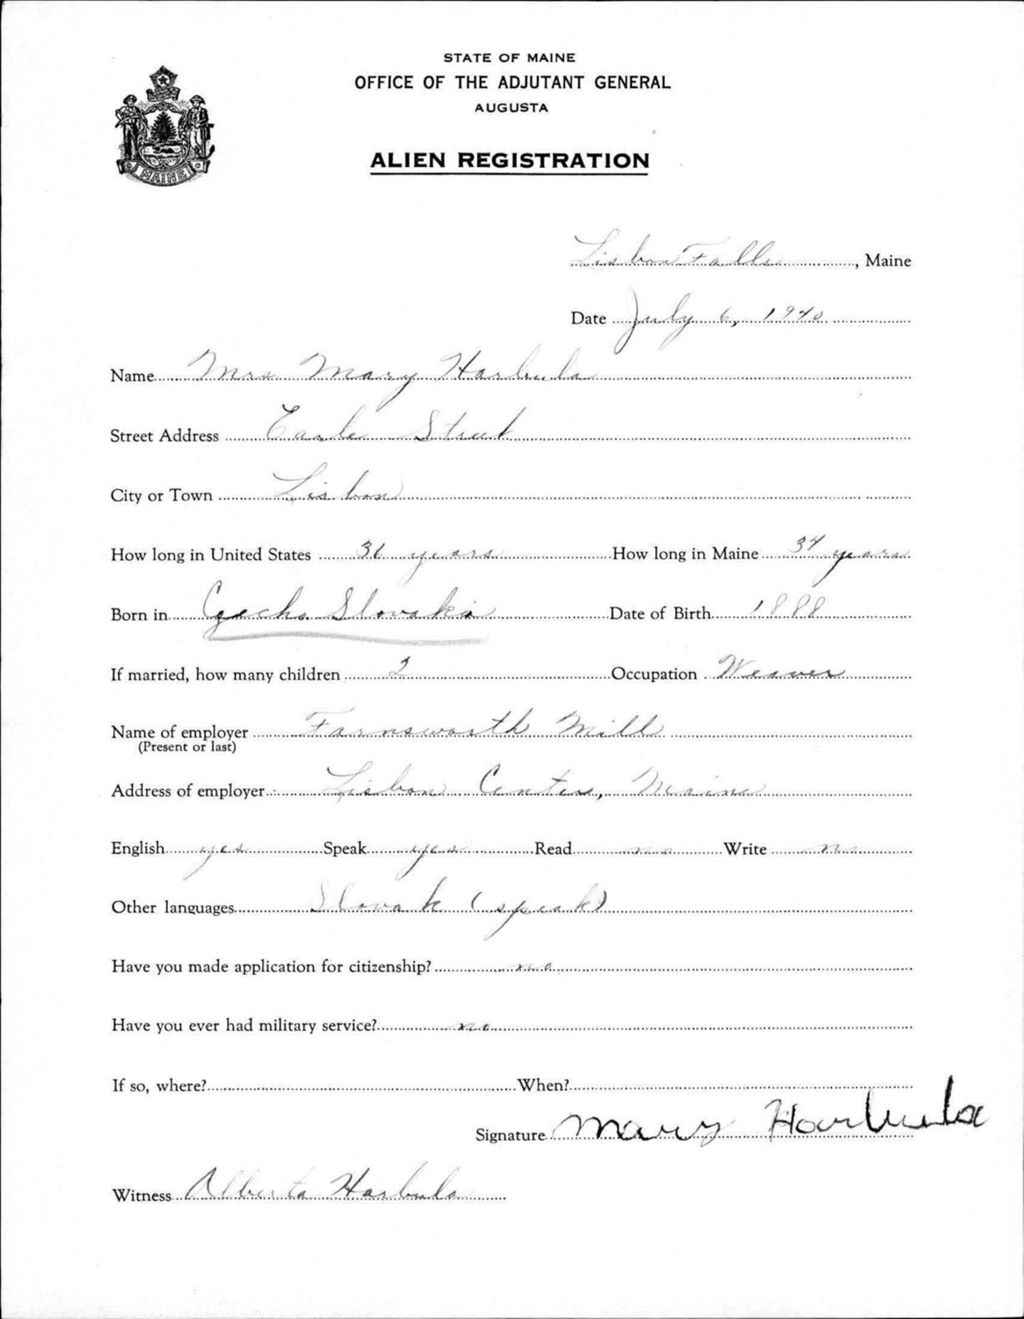 STATE OF MAINE
OFFICE OF THE ADJUTANT GENERAL
AUGUSTA
MAINE
ALIEN REGISTRATION
Lisbon Falls, Maine
Date July 6, 1940
Name Mrs Mary Harbula
Street Address Earle Street
City or Town Lisbon
How long in United States 36 years How long in Maine 34 years
Born in Czecho Slovakia Date of Birth 1888
If married, how many children 2 Occupation Weaver
Name of employer Farnsworth Mill
(Present or last)
Address of employer Lisbon Center, Maine
English yes Speak yes Read no Write no
Other languages Slovak (speak)
Have you made application for citizenship? no
Have you ever had military service? no
If so, where? When?
Signature Mary Harbula
Witness Alberta Harbula